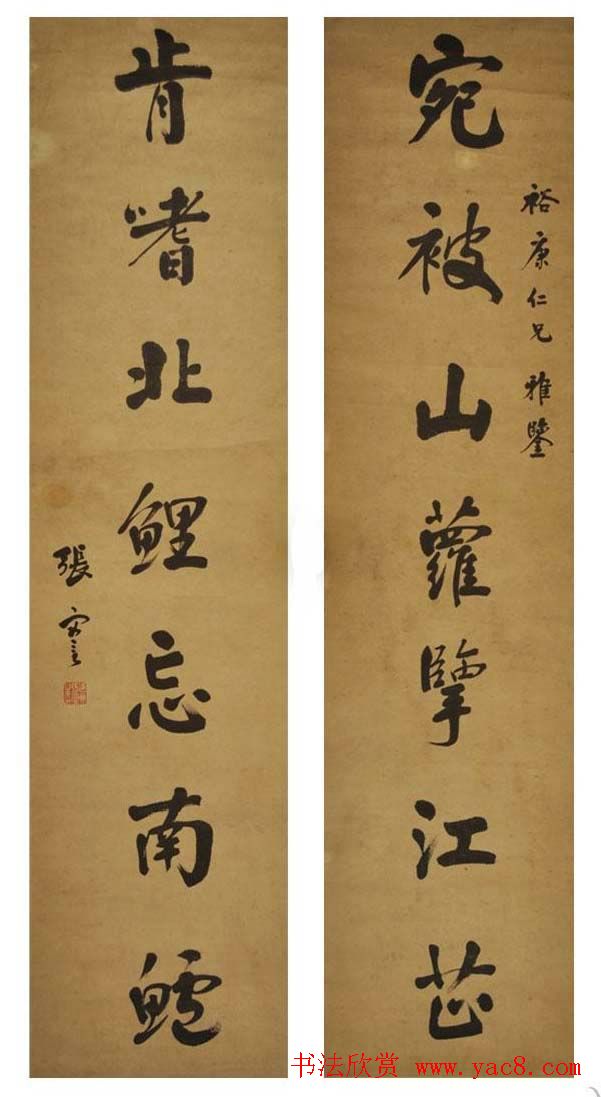 裕康仁兄雅鑒
宛被山蘿擥江芷
肯嗜北鯉忘南鱸
張謇
书法欣赏 www.yac8.com